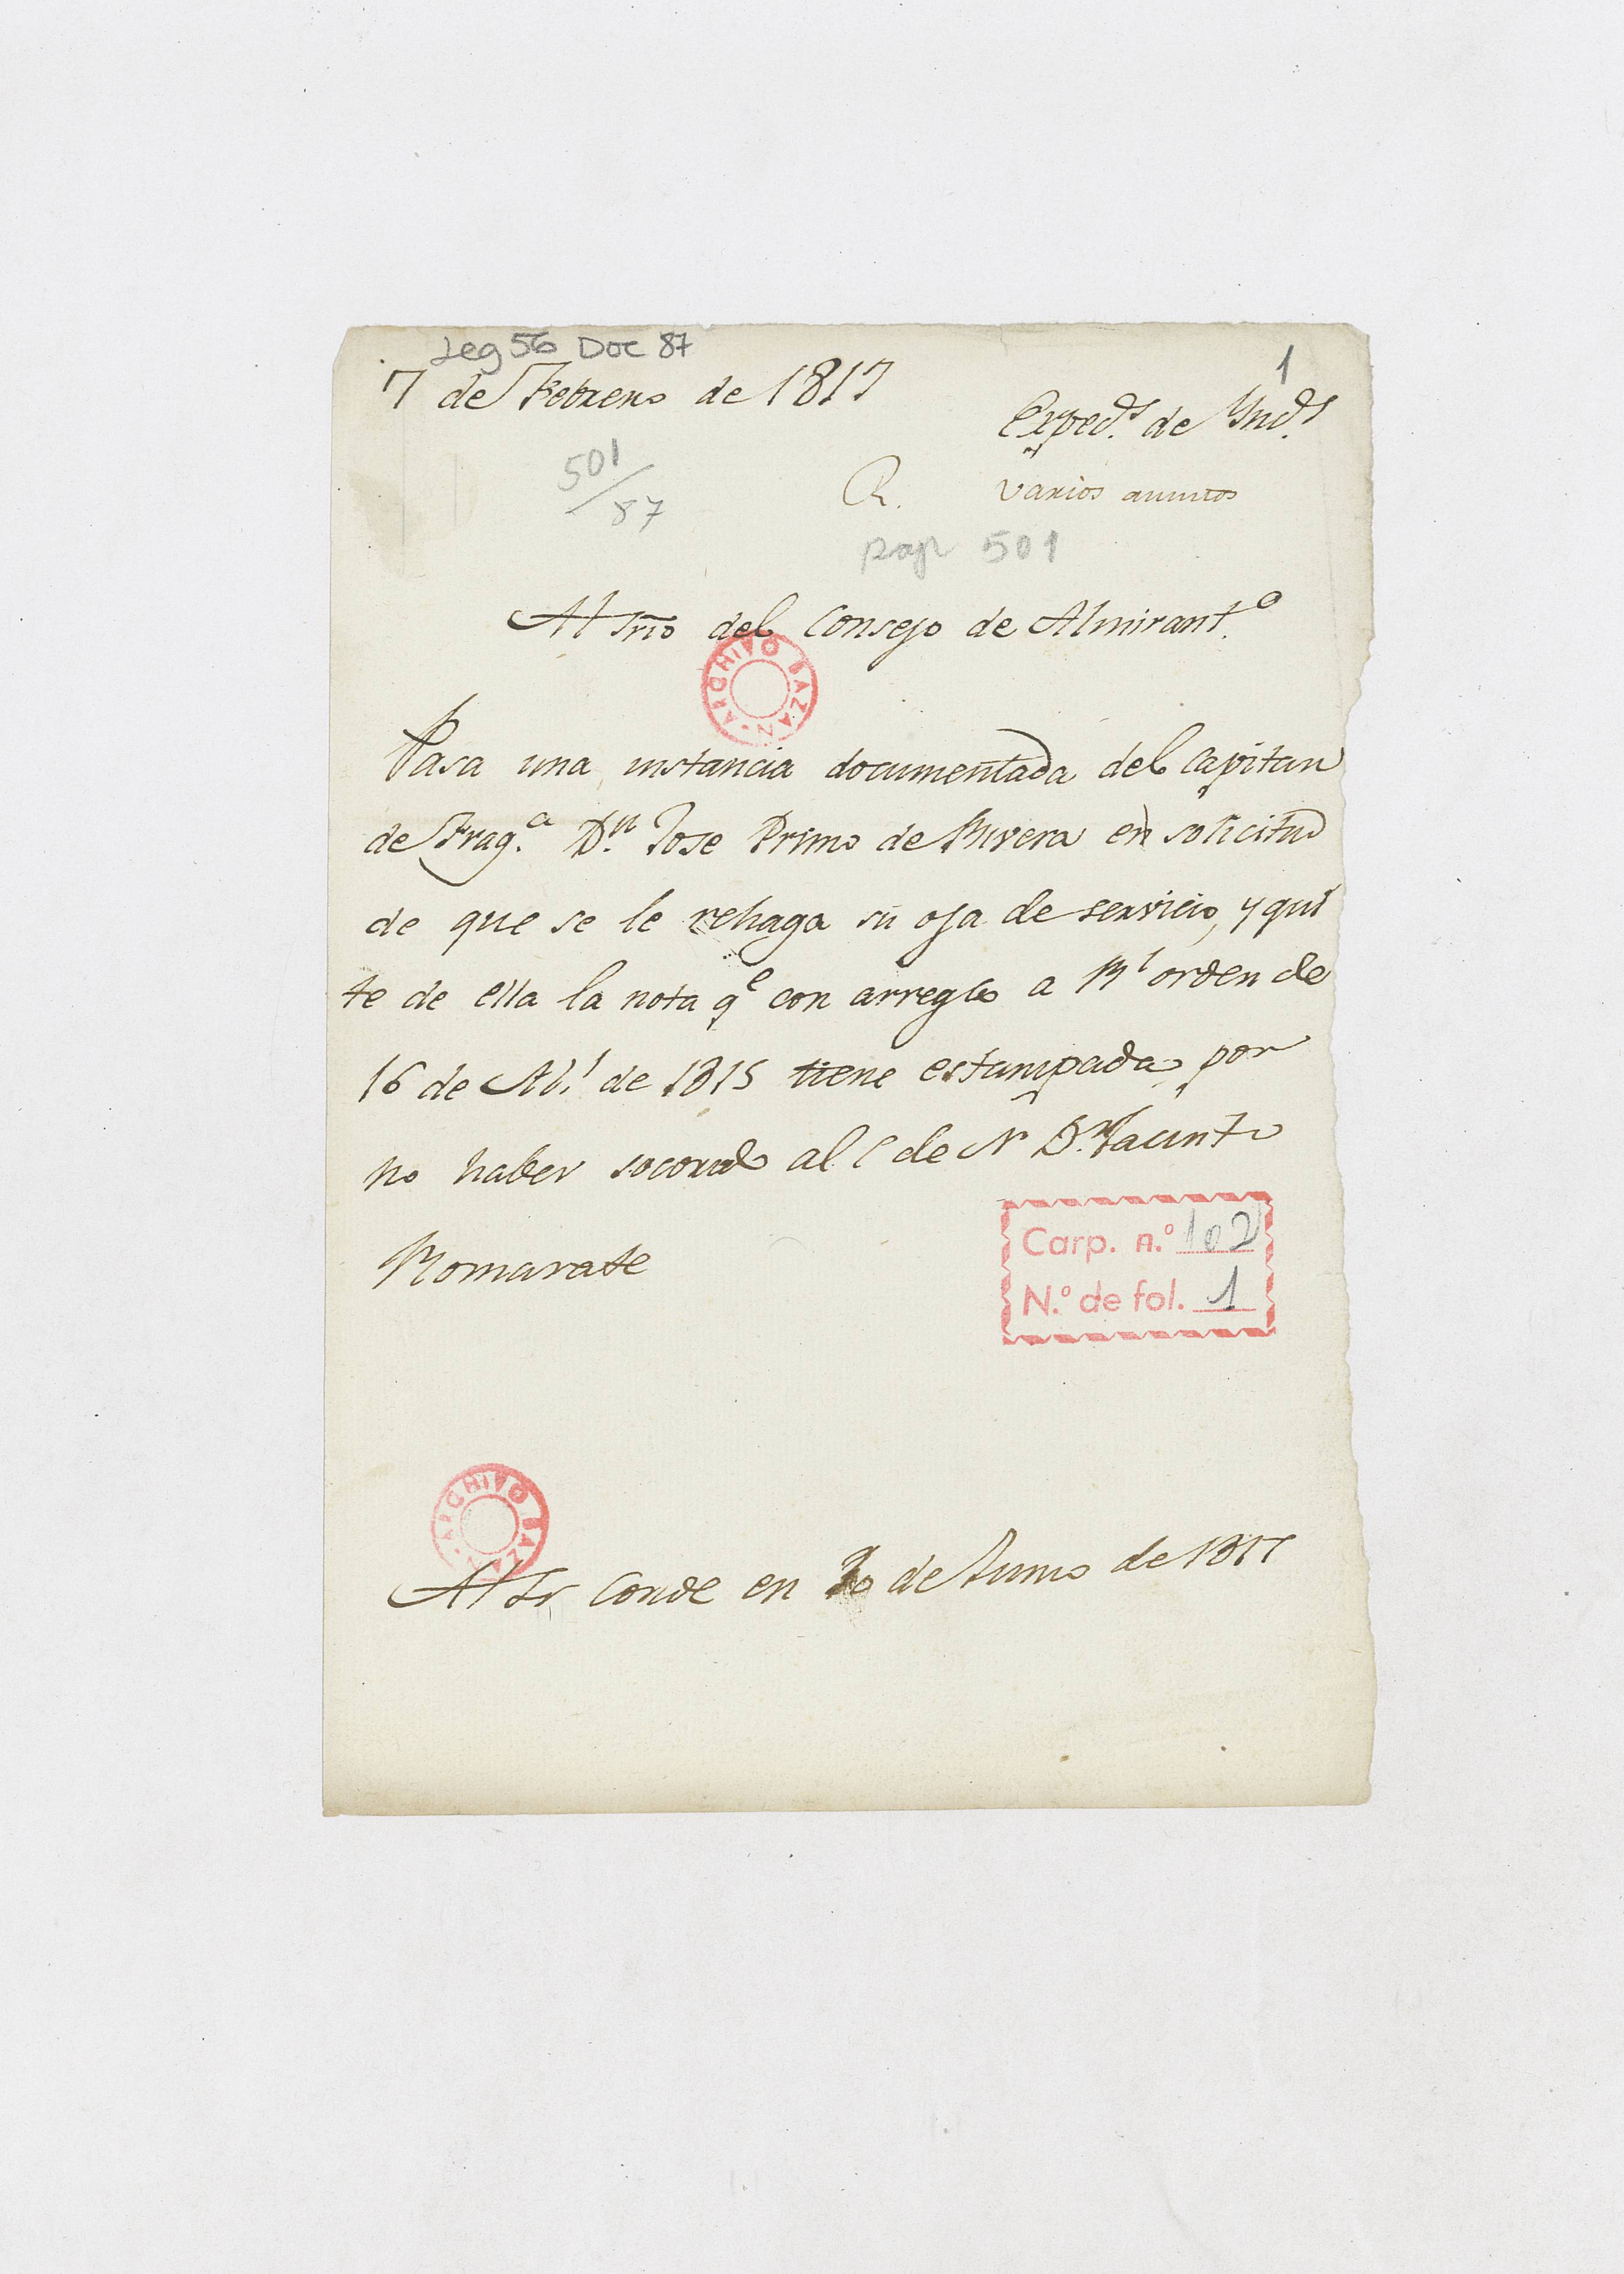 Leg 56 Doc 87
1
7 de Febrero de 1817
Exped.s de Ynd.s
501/87
R. varios asuntos
pap 501
Al Srio del Consejo de Almirant.o
ARCHIVO BAZAN
Pasa una instancia documentada del Capitan
de Frag.a D.n Jose Primo de Rivera en solicitud
de que se le rehaga su oja de servicio, y qui
te de ella la nota q.e con arreglo a Rl orden de
16 de Ab.l de 1815 tiene estampada por
no haber socorrido al C de N D.n Jacinto
Romarate
Carp. n.º 102
N.º de fol. 1
ARCHIVO BAZAN
Al Sr Conde en de Junio de 1817